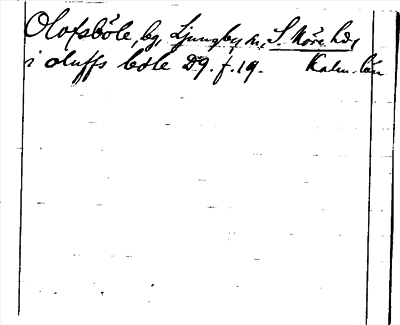 Olofsböle, by, Ljungby sn, S. Möre hd,
i oluffs bole D9. f. 19. Kalm. län